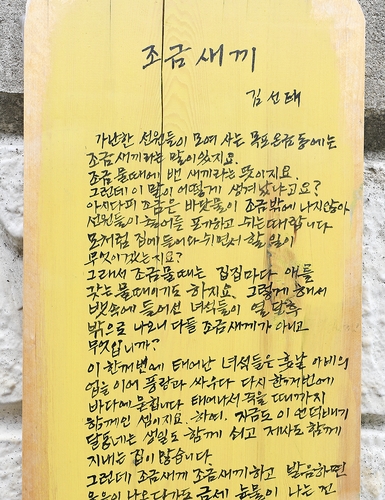 조금새끼
김선태
가난한 선원들이 모여사는 목포온금동에는
조금새끼라는 말이있지요.
조금 물때에 밴 새끼라는 뜻이지요.
그런데 이 말이 어떻게 생겨났냐고요?
아시다시피 조금은 바닷물이 조금밖에 나지않아
선원들이 출어를 포기하고 쉬는때랍니다
모처럼 집에 돌아와 쉬면서 할 일이
무엇이겠는지요?
그래서 조금물때는 집집마다 애를
갖는 물때이기도 하지요. 그렇게 해서
뱃속에 들어선 녀석들이 열달후
밖으로 나오니 다들 조금새끼가 아니고
무엇입니까?
이 한꺼번에 태어난 녀석들은 훗날 아비의
업을 이어 풍랑과 싸우다 다시 한꺼번에
바다에 묻힙니다 태어나서 죽을 때까지
함께인 셈이지요. 하여, 지금도 이 언덕배기
달동네는 생일도 함께 쇠고 제사도 함께
지내는 집이 많습니다
그런데 조금새끼 조금새끼하고 발음하면
웃음이 나오다가도 금세 눈물이 나는 건